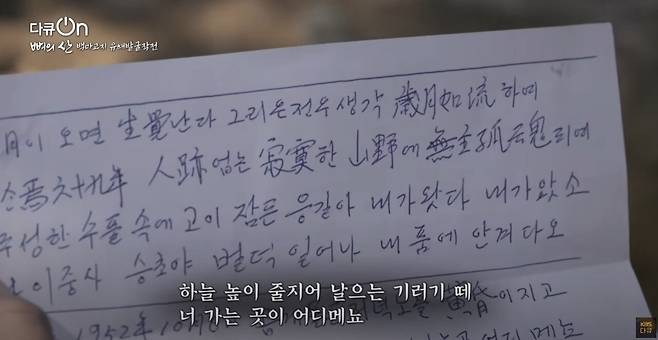 다큐On
뼈의 산 백마고지 유해발굴작전
월이 오면 生覺난다 그리운 전우 생각 歲月如流하여
焉六十九年 人跡없는 寂寞한 山野에 無主孤云魂되여
성한 수풀 속에 고이 잠든 응길아 내가 왔다 내가 왔소
이중사 승초야 벌떡 일어나 내 품에 안겨다오
1952年 10月
黃昏이 지고
메뇨
하늘 높이 줄지어 날으는 기러기 떼
너 가는 곳이 어디메뇨
KBS
다큐